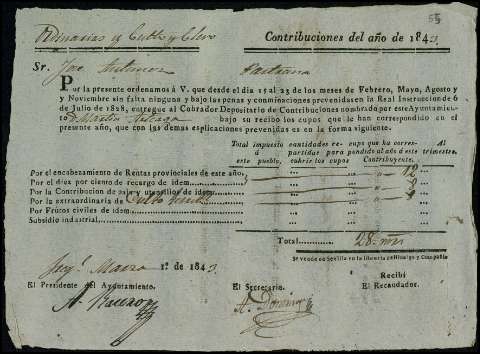 55
Ordinarias y Culto y Clero Contribuciones del año de 1843.
Sr. José
Por la presente ordenamos á V. que desde el dia 15 al 23 de los meses de Febrero, Mayo, Agosto y
y Noviembre sin falta ninguna y bajo las penas y conminaciones prevenidas en la Real Instruccion de 6
de Julio de 1828, entregue al Cobrador Depositario de Contribuciones nombrado por este Ayuntamiento
D. Martin bajo su recibo los cupos que le han correspondido en el
presente año, que con las demas esplicaciones prevenidas es en la forma siguiente.
Total impuesto á este pueblo. cantidades repartidas para cubrir los cupos cupo que ha correspondido al año á este Contribuyente. Al trimestre.
Por el encabezamiento de Rentas provinciales de este año, 12
Por el diez por ciento de recargo de idem
Por la Contribucion de paja y utensilios de idem
Por la extraordinaria de Culto
Por Frutos civiles de idem
Subsidio industrial
Total 28. mrs
Se vende en Sevilla en la librería de Hidalgo y Compañía
Marzo 1º. de 1843.
El Presidente del Ayuntamiento. El Secretario. Recibí
El Recaudador.